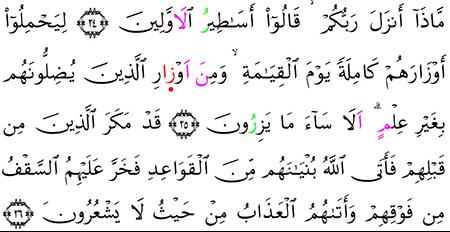 مَّاذَآ أَنزَلَ رَبُّكُمْ ۙ قَالُوٓا۟ أَسَـٰطِيرُ ٱلَاوَّلِينَ ۝٢٤ لِيَحْمِلُوٓا۟
أَوْزَارَهُمْ كَامِلَةً يَوْمَ ٱلْقِيَـٰمَةِ ۙ وَمِنَ اَوْزِارِ ٱلَّذِينَ يُضِلُّونَهُم
بِغَيْرِ عِلْمٍ ۗ اَلَا سَآءَ مَا يَزِرُونَ ۝٢٥ قَدْ مَكَرَ ٱلَّذِينَ مِن
قَبْلِهِمْ فَأَتَى ٱللَّهُ بُنْيَـٰنَهُم مِّنَ ٱلْقَوَاعِدِ فَخَرَّ عَلَيْهِمُ ٱلسَّقْفُ
مِن فَوْقِهِمْ وَأَتَىٰهُمُ ٱلْعَذَابُ مِنْ حَيْثُ لَا يَشْعُرُونَ ۝٢٦